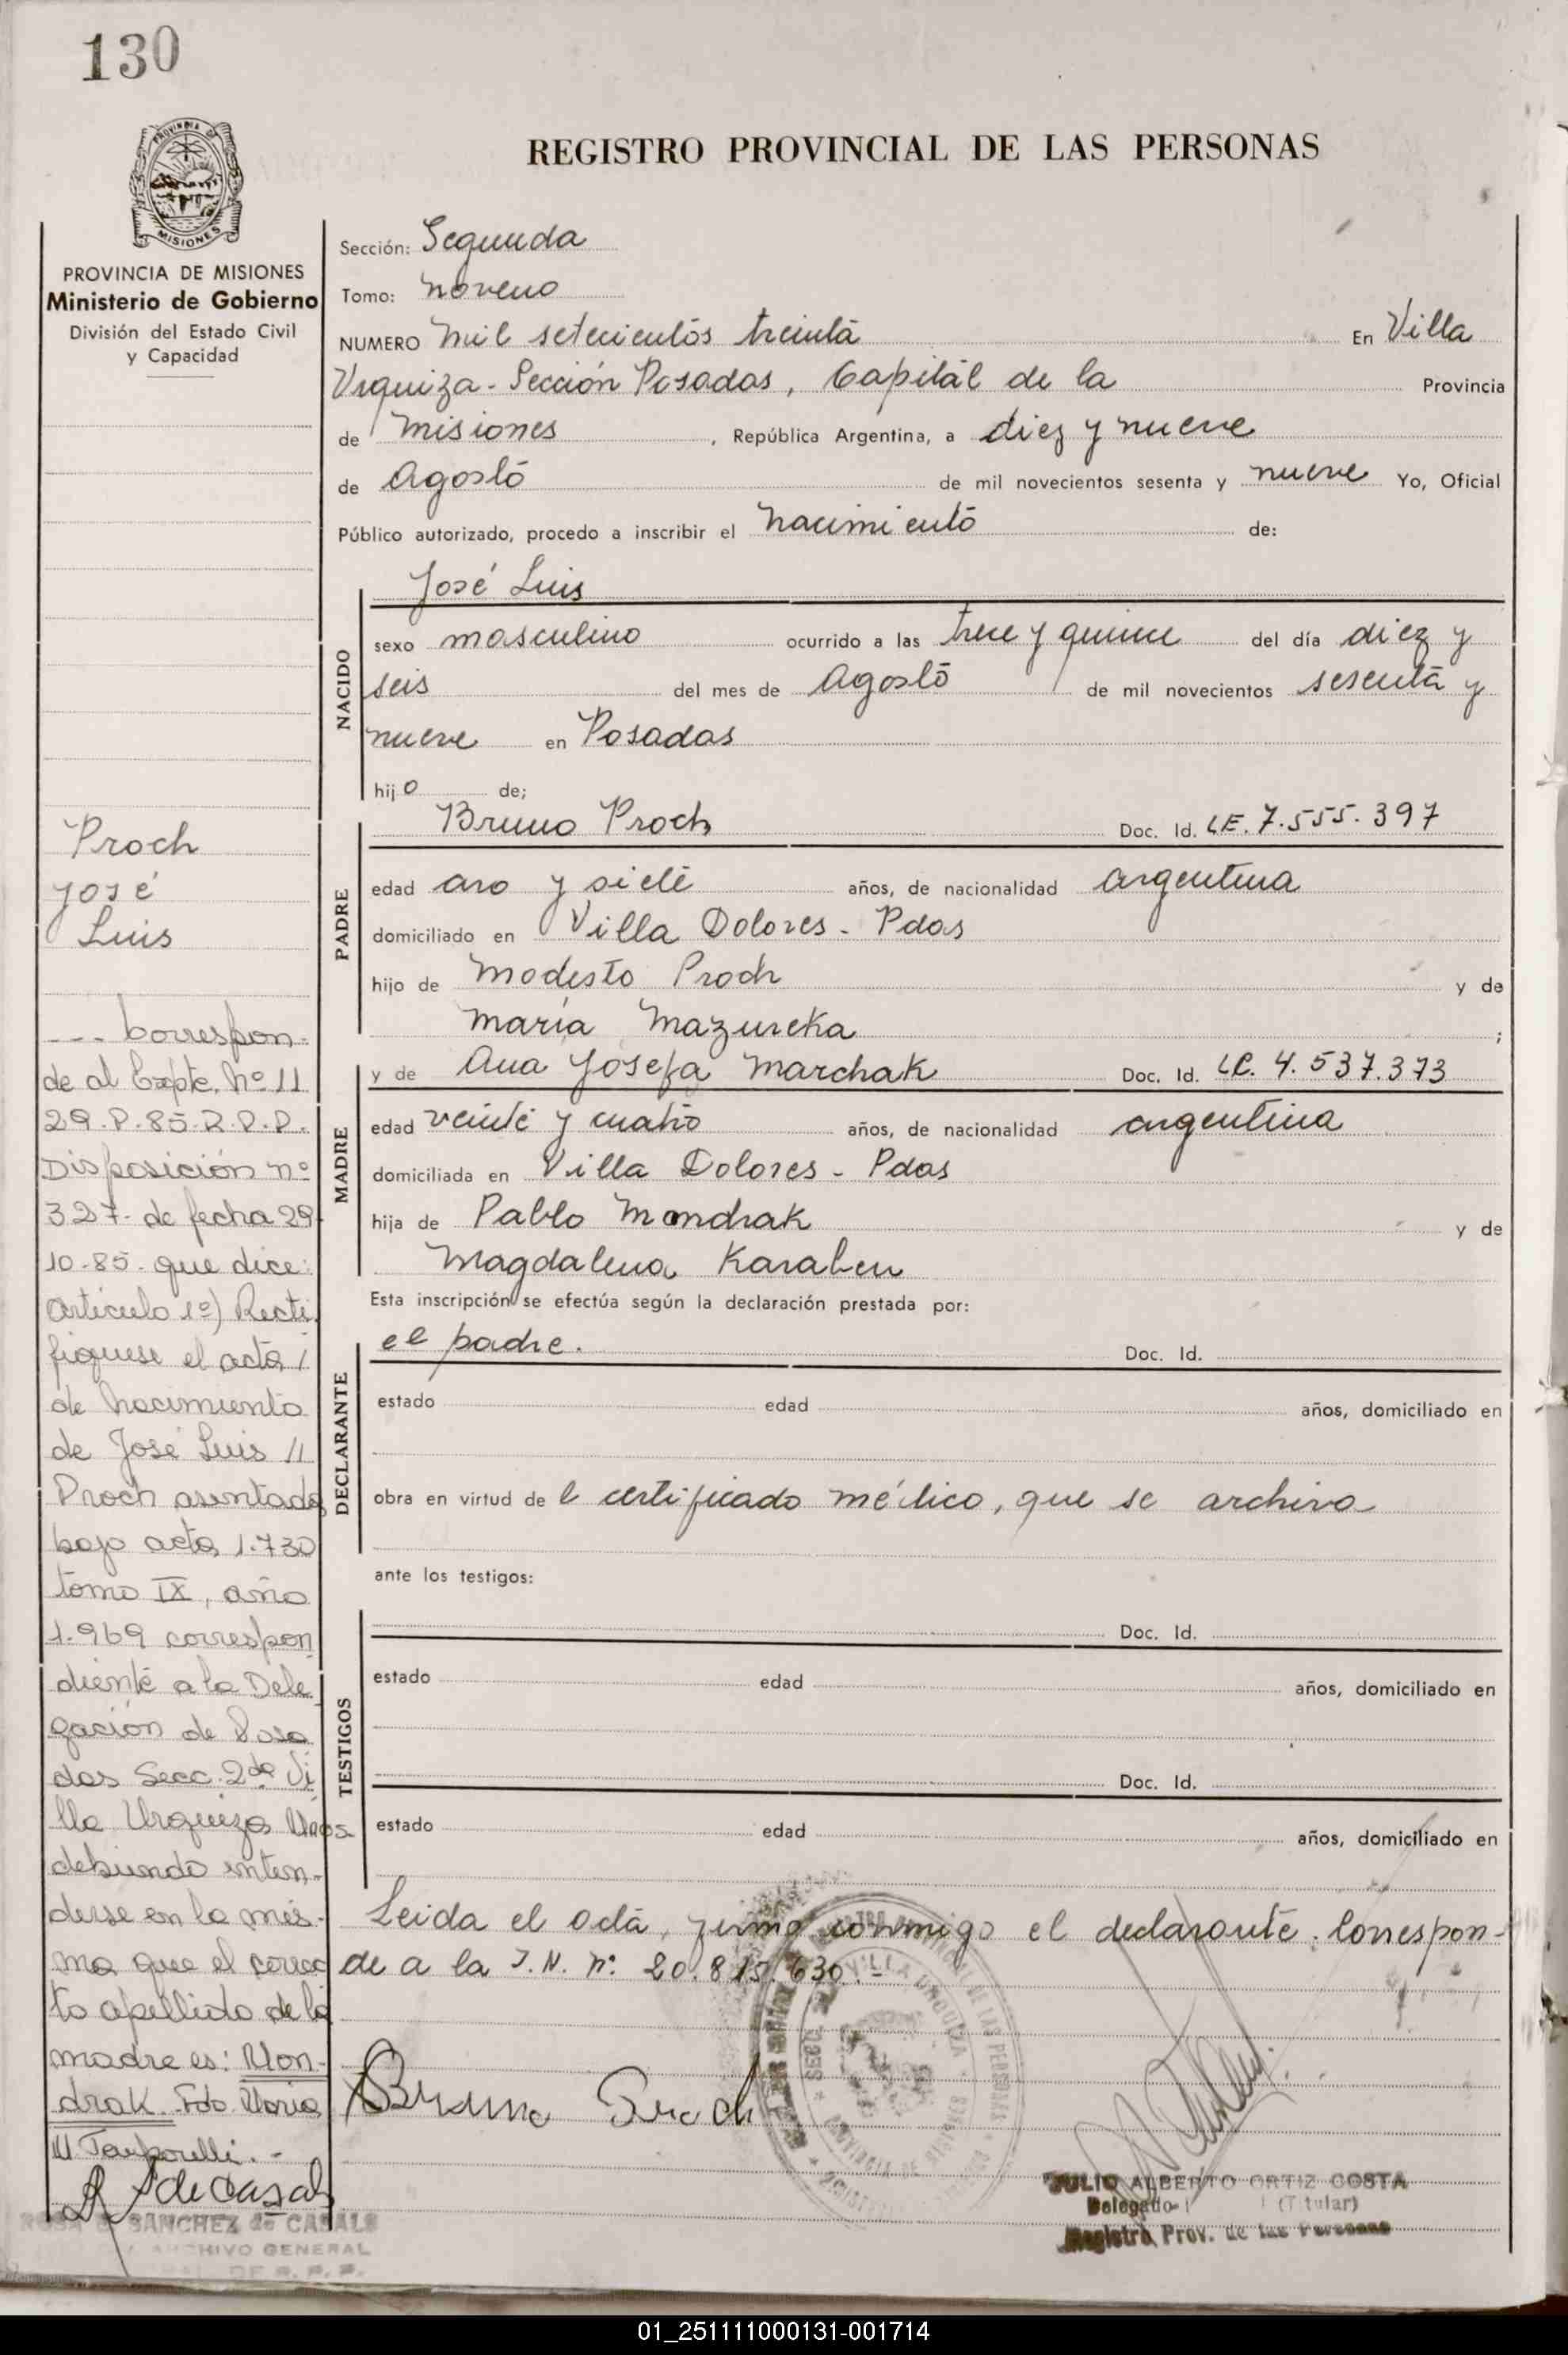 130
REGISTRO PROVINCIAL DE LAS PERSONAS
PROVINCIA DE MISIONES
Ministerio de Gobierno
División del Estado Civil
y Capacidad
Sección: Segunda
Tomo: Noveno
NUMERO Mil setecientos treinta En Villa
Urquiza - Sección Posadas, Capital de la Provincia
de Misiones, República Argentina, a diez y nueve
de Agosto de mil novecientos sesenta y nueve Yo, Oficial
Público autorizado, procedo a inscribir el Nacimiento de:
NACIDO
José Luis
sexo masculino ocurrido a las trece y quince del día diez y
seis del mes de Agosto de mil novecientos sesenta y
nueve en Posadas
hijo de;
PADRE
Bruno Proch Doc. Id. LE. 7.555.397
edad y siete años, de nacionalidad argentina
domiciliado en Villa Dolores - Pdas
hijo de Modesto Proch y de
María Mazureka ;
MADRE
y de Ana Josefa Marchak Doc. Id. LC. 4.537.373
edad veinte y cuatro años, de nacionalidad argentina
domiciliada en Villa Dolores - Pdas
hija de Pablo Mondrak y de
Magdalena Karaben
Esta inscripción se efectúa según la declaración prestada por:
DECLARANTE
el padre. Doc. Id.
estado edad años, domiciliado en
obra en virtud de l certificado médico, que se archiva
ante los testigos:
TESTIGOS
Doc. Id.
estado edad años, domiciliado en
Doc. Id.
estado edad años, domiciliado en
Leida el acta, firma conmigo el declarante. Correspon-
de a la I.N. Nº: 20.815.630.-
Bruno Proch
JULIO ALBERTO ORTIZ COSTA
Delegado (Titular)
Registro Prov. de las Personas
Proch
José
Luis
--- Correspon-
de al Expte. Nº 11
29.P.85-R.P.P.
Disposición nº
327- de fecha 29-
10-85- que dice:
Artículo 1º) Recti
fíquese el acta /
de Nacimiento
de José Luis //
Proch asentada
bajo acta 1.730
tomo IX, año
1.969 correspon
diente a la Dele
gación de Posa
das Secc. 2da Vi
lla Urquiza Mnes-
debiendo enten-
derse en la mis-
ma que el correc
to apellido de la
madre es: Mon-
drak. Fdo. Maria
de Casals
SANCHEZ de CASALS
ARCHIVO GENERAL
DE R.P.P.
01_251111000131-001714